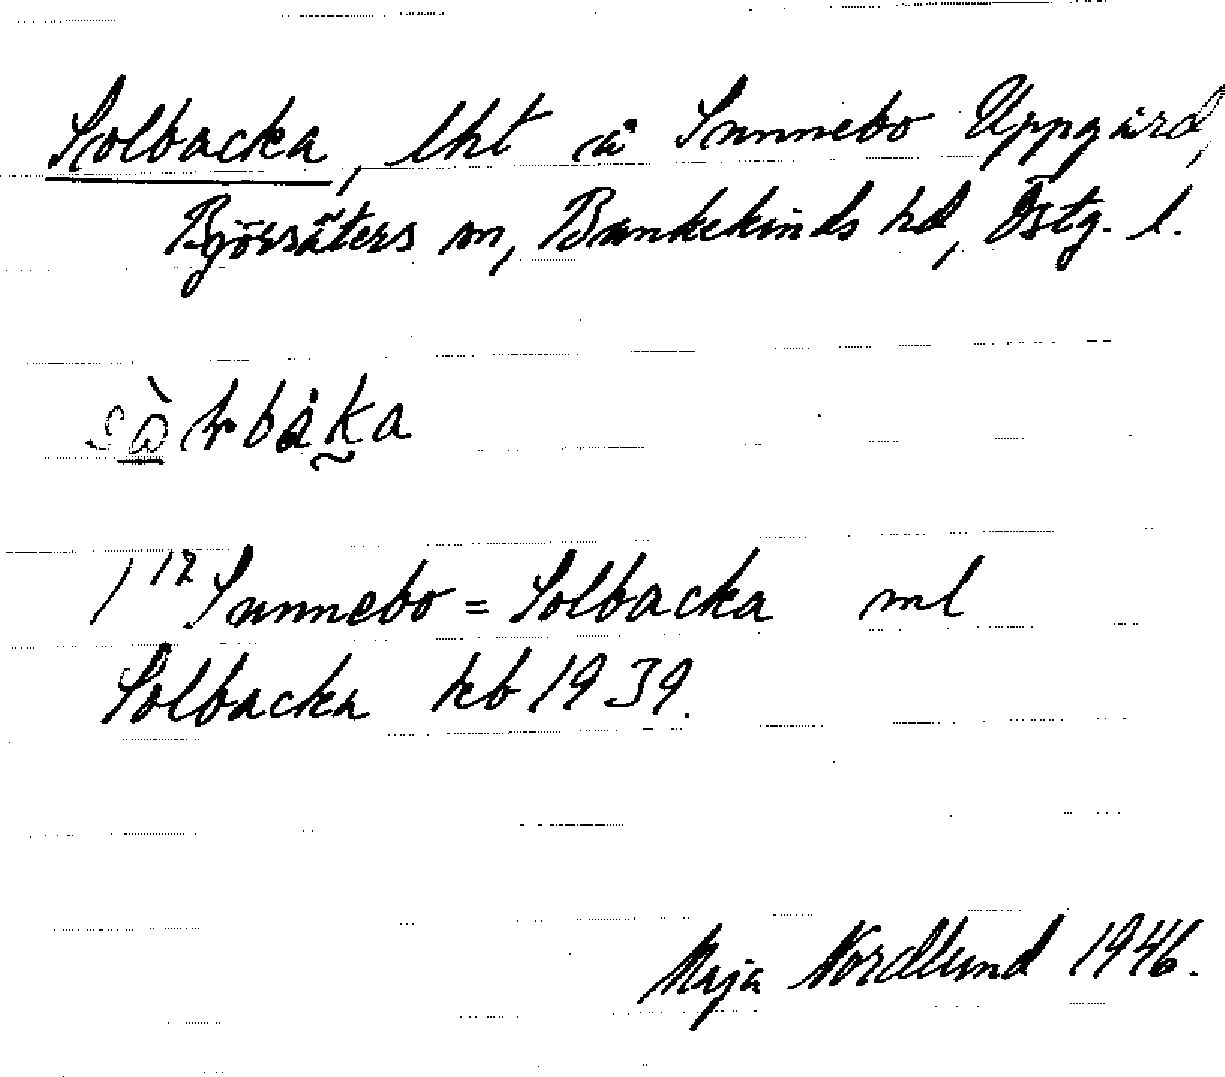 Solbacka, lht å Sunnebo Uppgård,
Björsäters sn, Bankekinds hd, Östg. l.
1¹² Sunnebo = Solbacka ml
Solbacka kb 1939.
Maja Nordlund 1946.